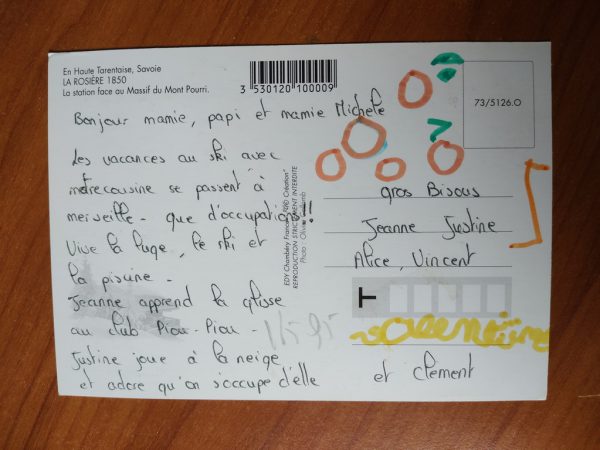 En Haute Tarentaise, Savoie
LA ROSIÈRE 1850
La station face au Massif du Mont Pourri.
3 530120 100009
73/5126.O
Bonjour mamie, papi et mamie Michele
Les vacances au ski avec
notre cousine se passent à
merveille - que d'occupations!!
Vive la luge, le ski et
la piscine -
Jeanne apprend la glisse
au club Piou-Piou -
Justine joue à la neige
et adore qu'on s'occupe d'elle
EDY Chambéry France
REPRODUCTION STRICTEMENT INTERDITE
Photo : Olivier
gros Bisous
Jeanne Justine
Alice, Vincent
et clément